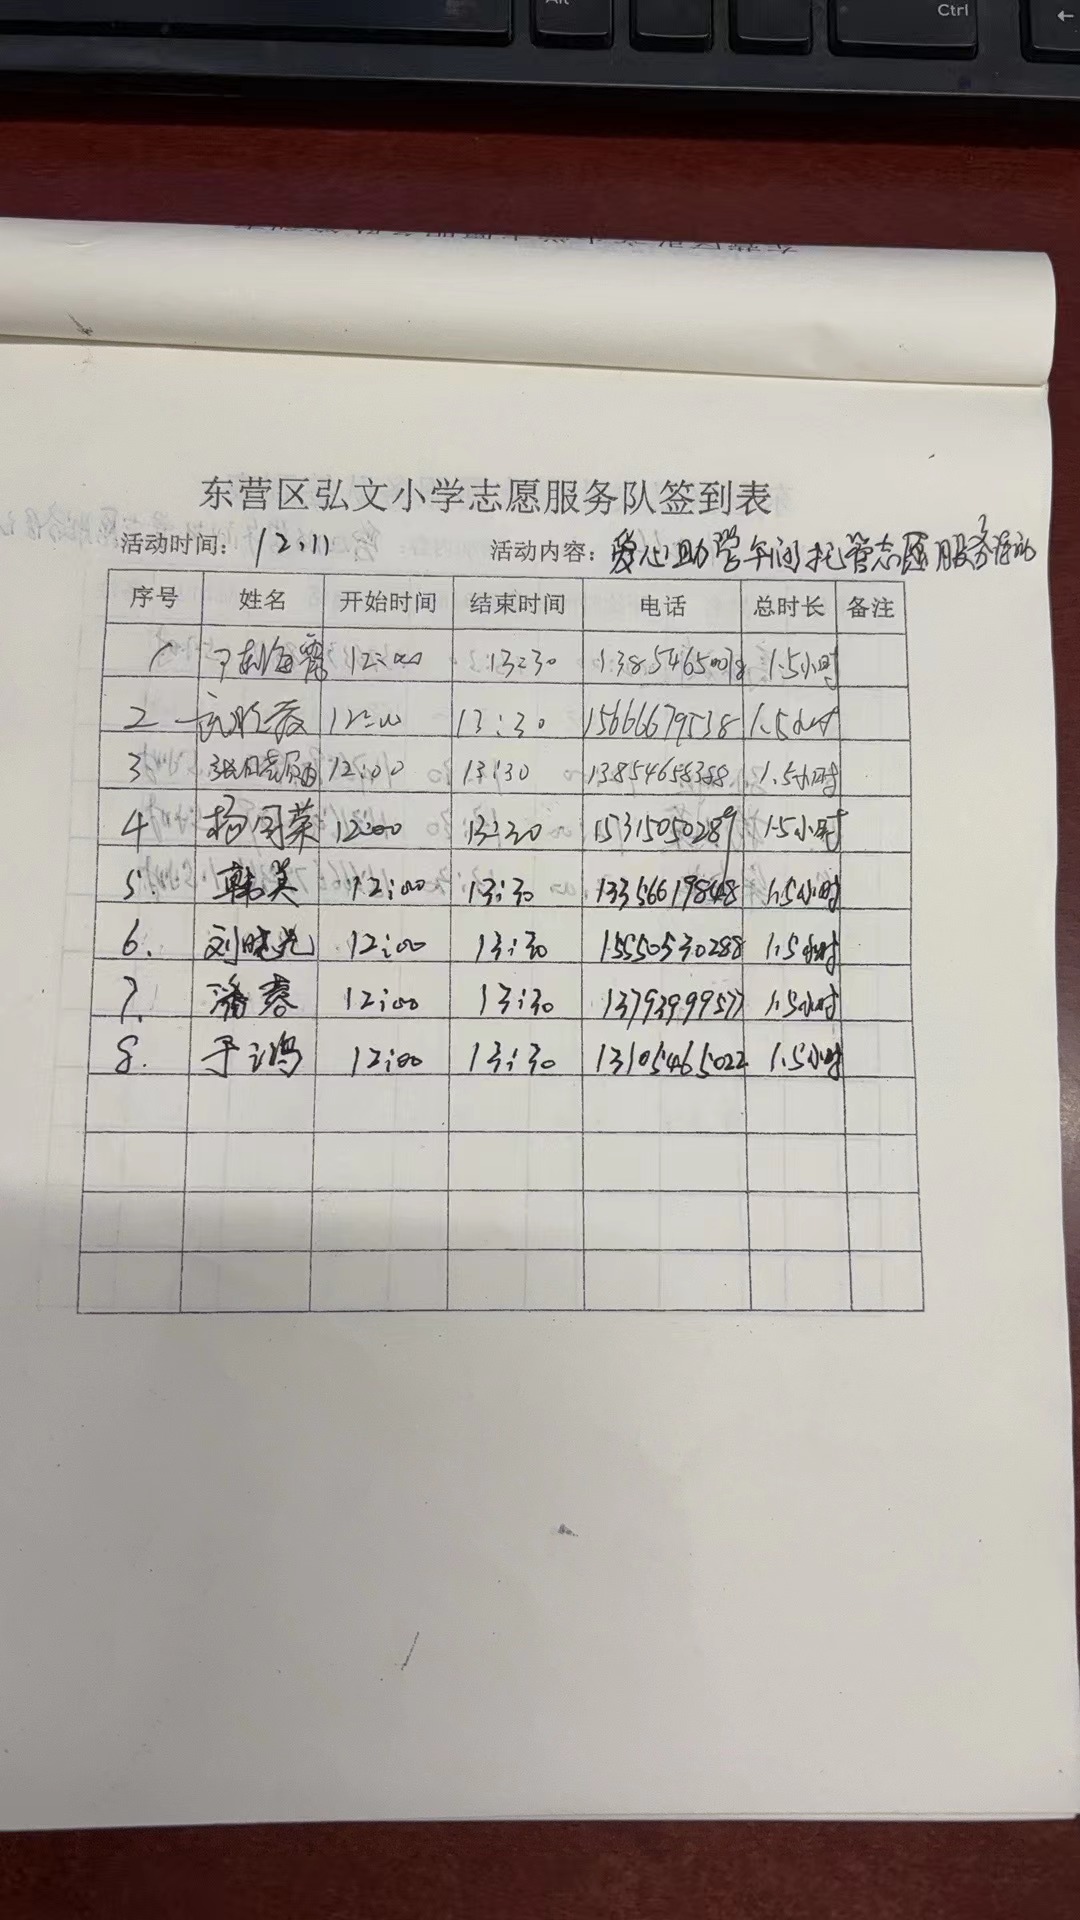 Alt
Ctrl
东营区弘文小学志愿服务队签到表
活动时间：12.11 活动内容：爱心助学午间托管志愿服务活动
序号 姓名 开始时间 结束时间 电话 总时长 备注
1 海霞 12:00 13:30 13854650078 1.5小时
2 12:00 13:30 15666679538 1.5小时
3 张晓 12:00 13:30 13854658388 1.5小时
4 杨国荣 12:00 13:30 15315050289 1.5小时
5. 韩美 12:00 13:30 13356619848 1.5小时
6. 刘晓光 12:00 13:30 15550530288 1.5小时
7. 潘蓉 12:00 13:30 13793999577 1.5小时
8. 于鸿 12:00 13:30 13105465022 1.5小时